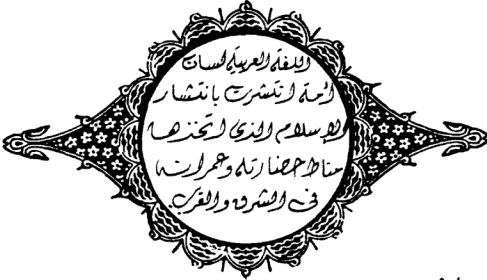 اللغة العربية لسان
أمة انتشرت بانتشار
الإسلام الذى اتخذها
مناط حضارته وعمرانه
فى الشرق والغرب